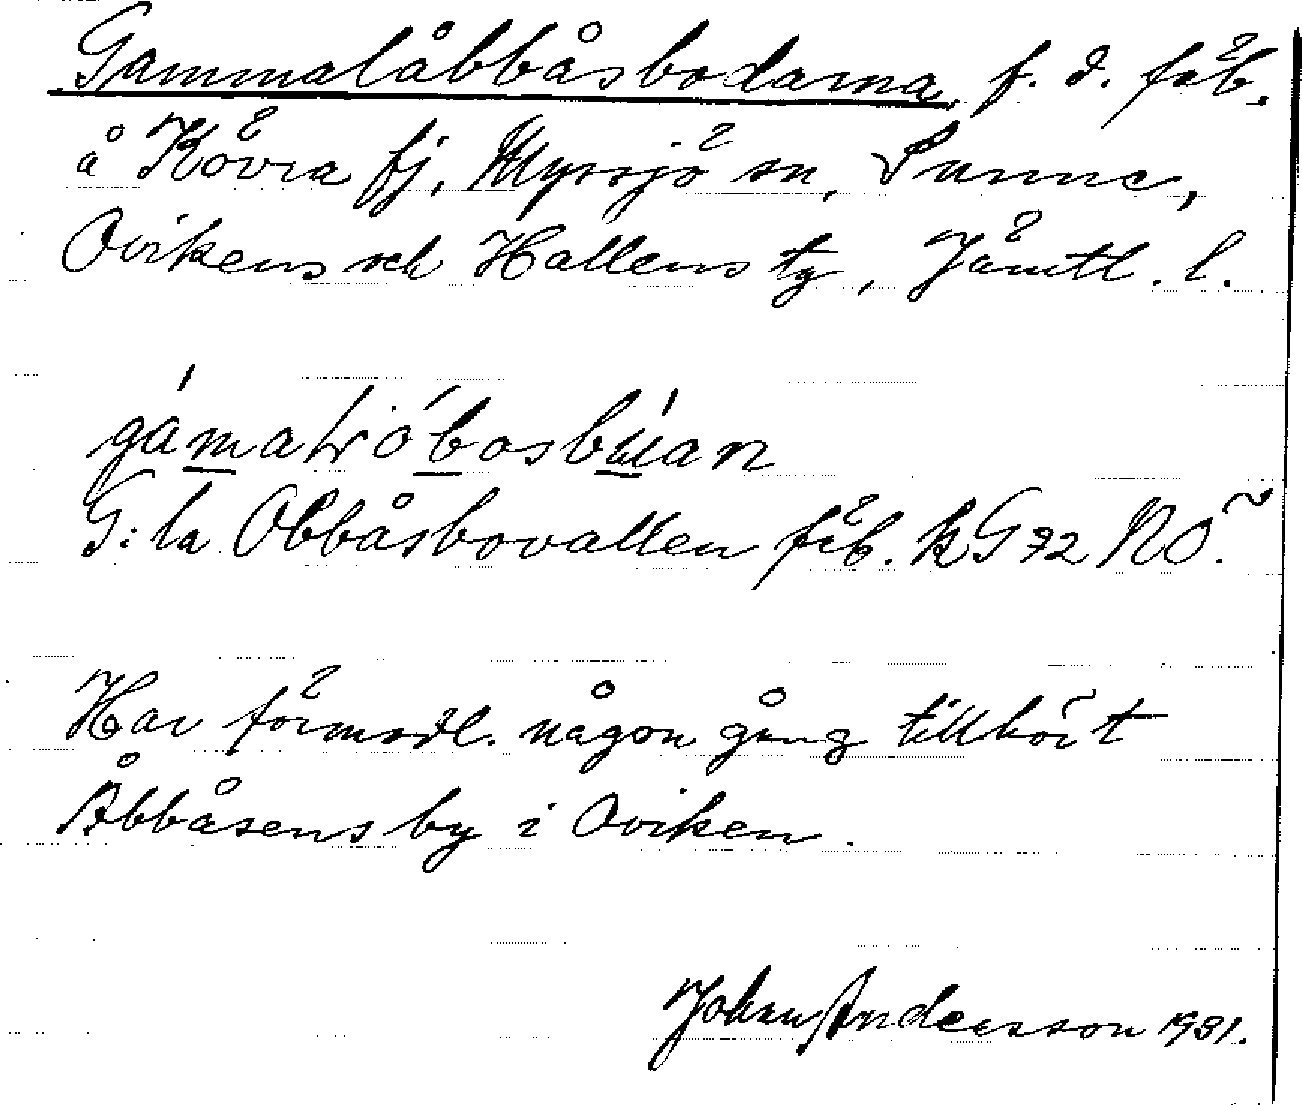 Gammalåbbåsbodarna f. d. fäb.
å Kövra fj, Myssjö sn, Sunne,
Ovikens och Hallens tg, Jämtl. l.
G:la Obbåsbovallen fäb. kG 92 NÖ.
Har förmodl. någon gång tillhört
Åbbåsens by i Oviken.
Johan Andersson 1931.